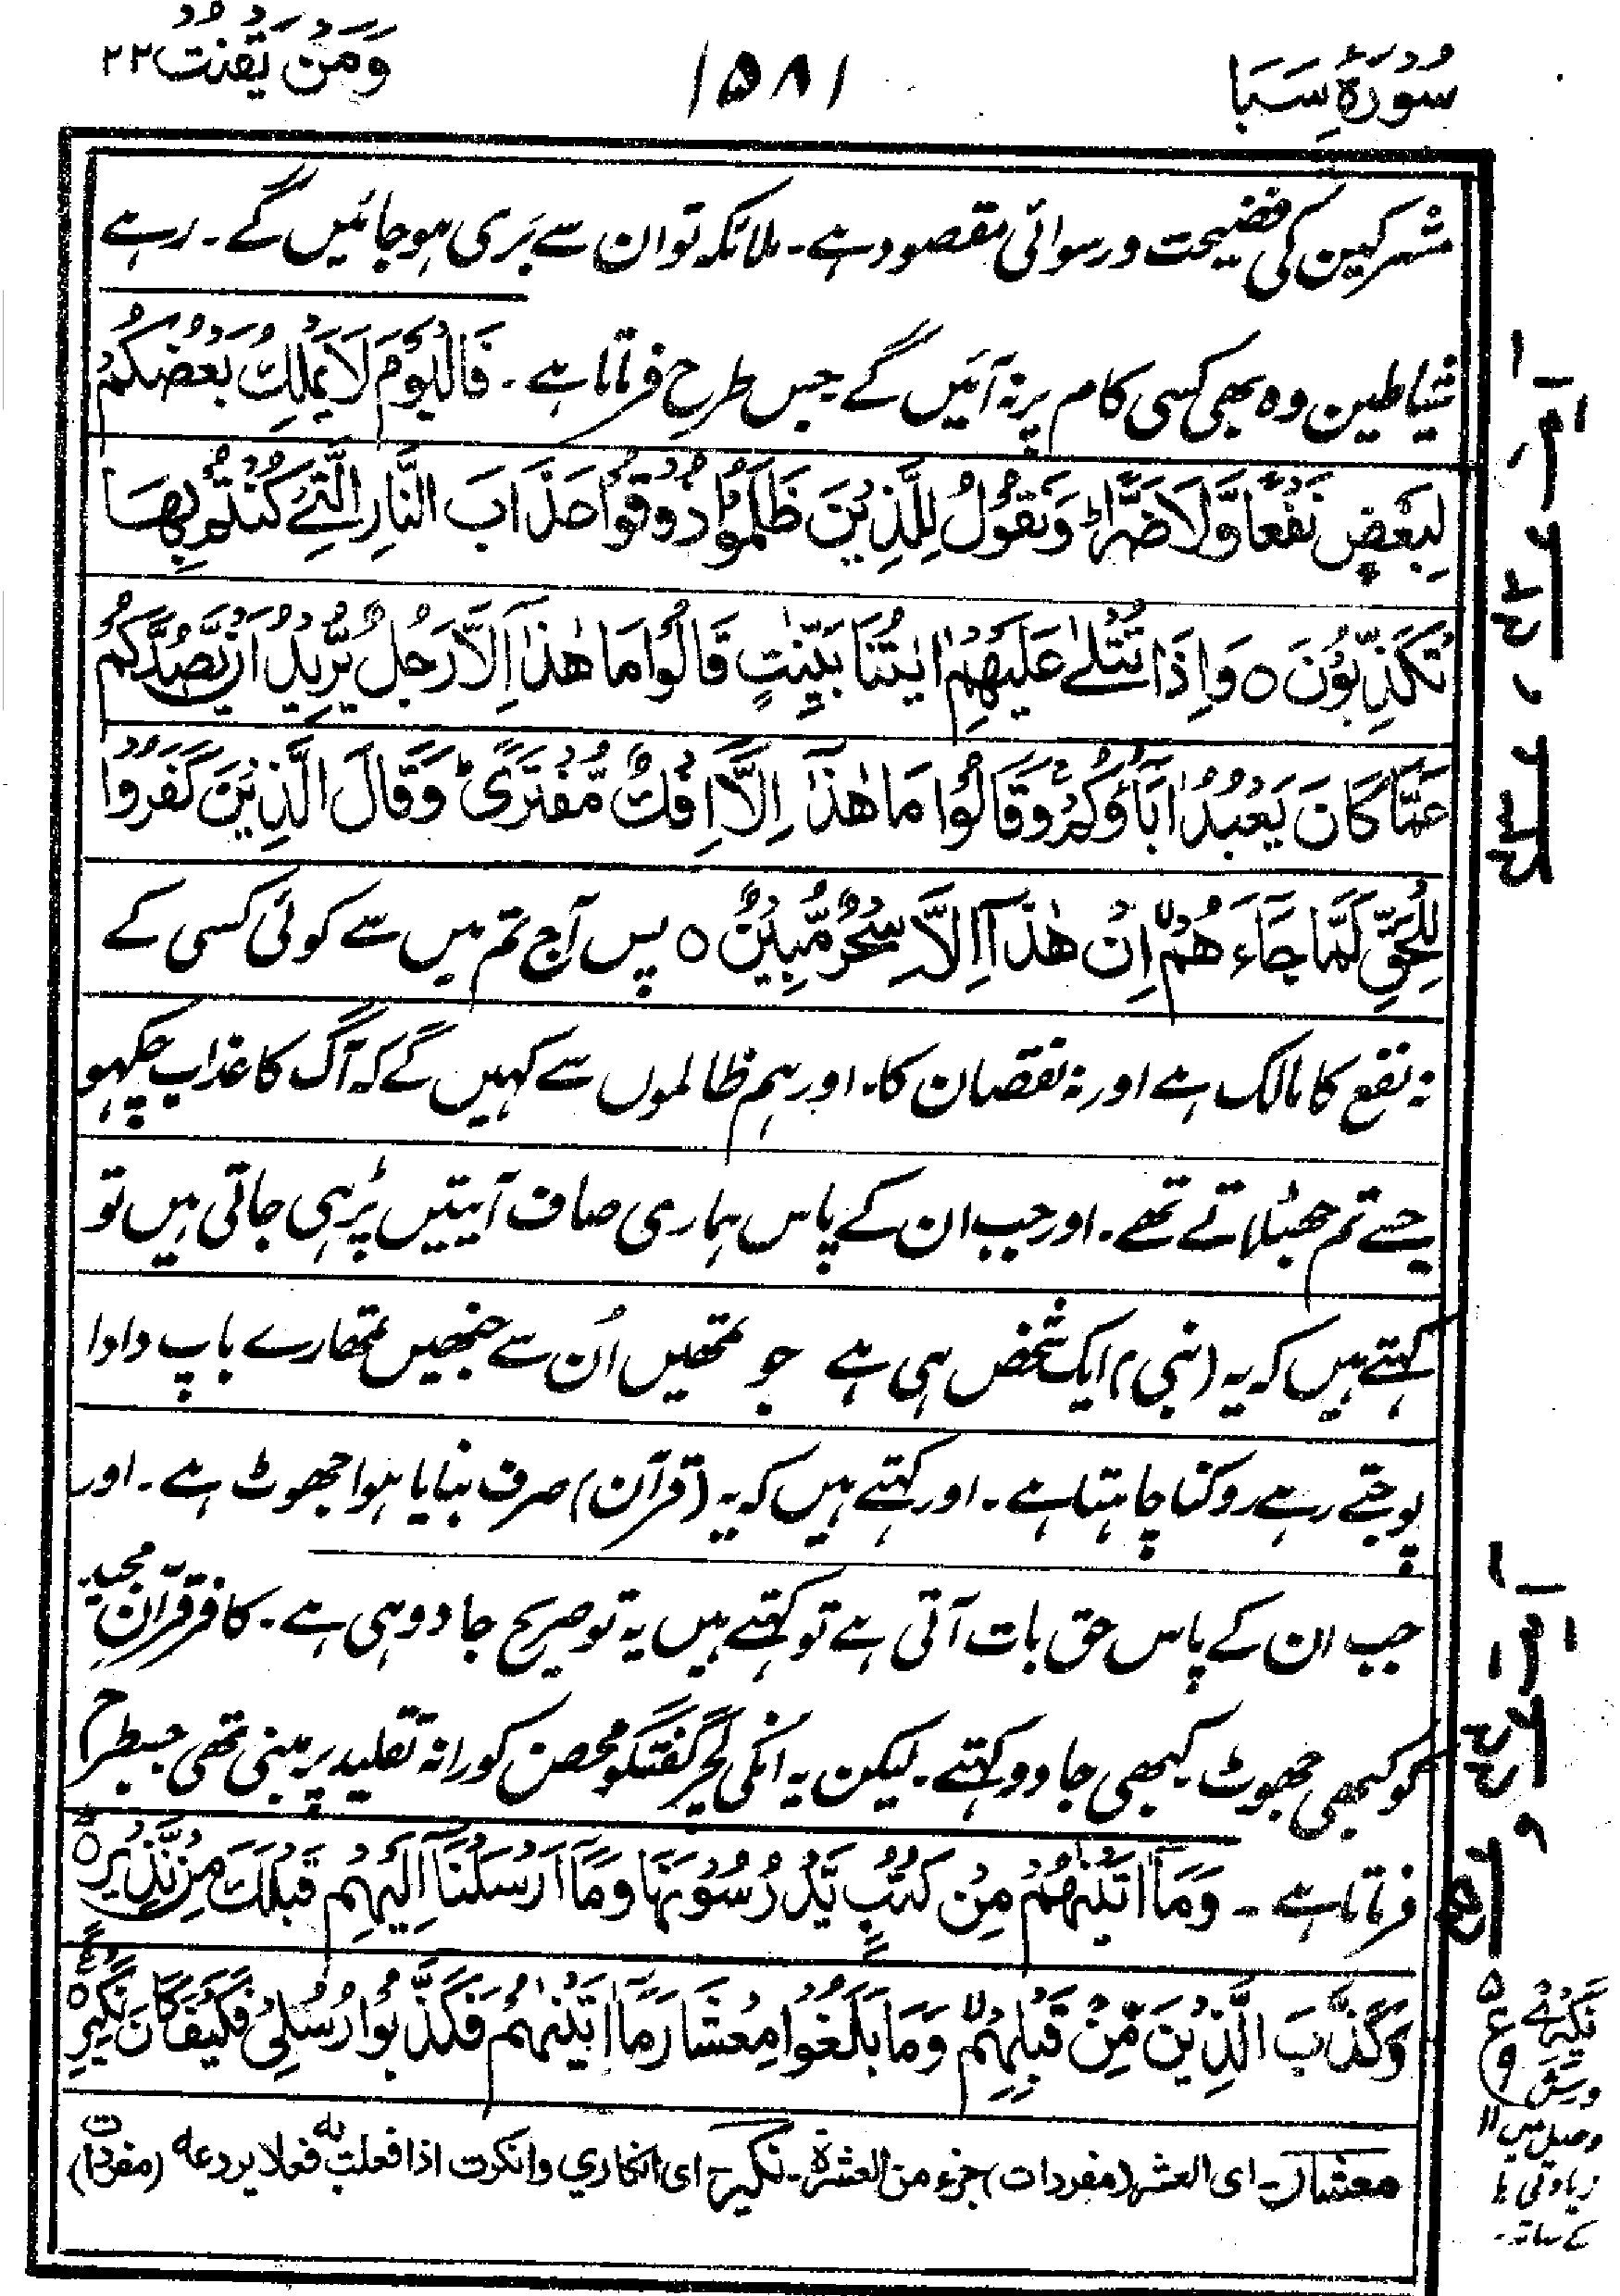 سُوْرَةُ سَبَا
١٥٨١
وَمَنْ يَقْنُتْ ٢٢
مشرکین کی فضیحت و رسوائی مقصود ہے۔ ملائکہ تو ان سے بَری ہو جائیں گے۔ رہے
شیاطین وہ بھی کسی کام پر نہ آئیں گے جس طرح فرماتا ہے۔ فَالْيَوْمَ لَا يَمْلِكُ بَعْضُكُمْ
لِبَعْضٍ نَّفْعًا وَّلَا ضَرًّا ؕ وَنَقُوْلُ لِلَّذِيْنَ ظَلَمُوْا ذُوْقُوْا عَذَابَ النَّارِ الَّتِيْ كُنْتُمْ بِهَا
تُكَذِّبُوْنَ ○ وَاِذَا تُتْلٰى عَلَيْهِمْ اٰيٰتُنَا بَيِّنٰتٍ قَالُوْا مَا هٰذَآ اِلَّا رَجُلٌ يُّرِيْدُ اَنْ يَّصُدَّكُمْ
عَمَّا كَانَ يَعْبُدُ اٰبَآؤُكُمْ ۚ وَقَالُوْا مَا هٰذَآ اِلَّآ اِفْكٌ مُّفْتَرًى ؕ وَقَالَ الَّذِيْنَ كَفَرُوْا
لِلْحَقِّ لَمَّا جَآءَهُمْ ۙ اِنْ هٰذَآ اِلَّا سِحْرٌ مُّبِيْنٌ ○ پس آج تم میں سے کوئی کسی کے
نہ نفع کا مالک ہے اور نہ نقصان کا۔ اور ہم ظالموں سے کہیں گے کہ آگ کا عذاب چکھو
جسے تم جھٹلاتے تھے۔ اور جب ان کے پاس ہماری صاف آیتیں پڑہی جاتی ہیں تو
کہتے ہیں کہ یہ (نبی) ایک شخص ہی ہے جو تمھیں اُن سے جنھیں تمھارے باپ دادا
پوجتے رہے روکنا چاہتا ہے۔ اور کہتے ہیں کہ یہ (قرآن) صرف بنایا ہوا جھوٹ ہے۔ اور
جب ان کے پاس حق بات آتی ہے تو کہتے ہیں یہ تو صریح جادو ہی ہے۔ کافر قرآن مجید
کو کبھی جھوٹ کبھی جادو کہتے۔ لیکن یہ انکی لچر گفتگو محض کورانہ تقلید پر مبنی تھی جسطرح
فرماتا ہے۔ وَمَآ اٰتَيْنٰهُمْ مِّنْ كُتُبٍ يَّدْرُسُوْنَهَا وَمَآ اَرْسَلْنَآ اِلَيْهِمْ قَبْلَكَ مِنْ نَّذِيْرٍ ○
وَكَذَّبَ الَّذِيْنَ مِنْ قَبْلِهِمْ ۙ وَمَا بَلَغُوْا مِعْشَارَ مَآ اٰتَيْنٰهُمْ فَكَذَّبُوْا رُسُلِيْ فَكَيْفَ كَانَ نَكِيْرِ ○
معشار۔ ای العشر (مفردات) جزء من العشرة۔ نکیر ای انکاری وانکرت اذا فعلت به فعلا یردعه (مفردات)
ع
نکیرے
ورش
وصل میں
زیادتی یا
کے ساتھ۔